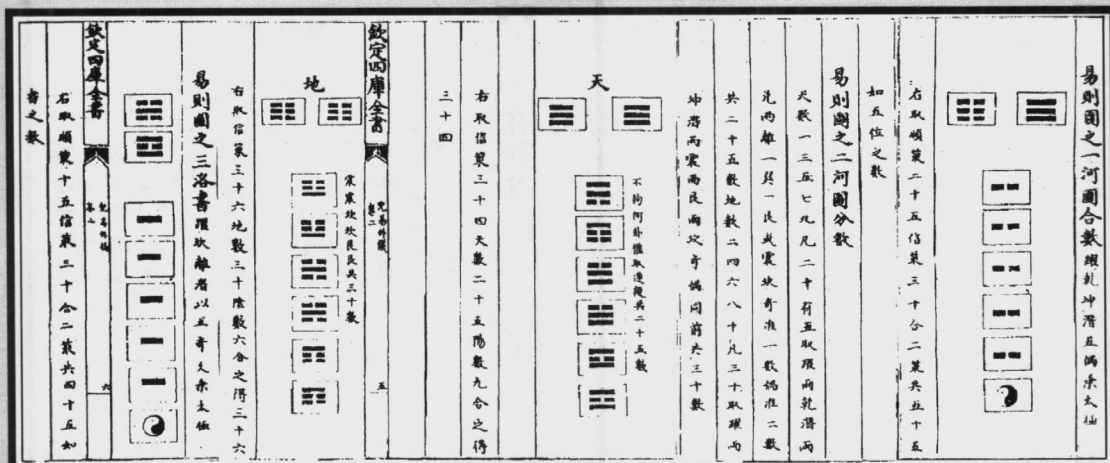 易則圖之一河圖合數躍乾坤潛五偶乘太極
右取順策二十五信策三十合二策共五十五
如五位之數
易則圖之二河圖分數
天數一三五七九凡二十有五取躍兩乾潛兩
兌兩離一巽一艮或震坎奇准一數偶准二數
共二十五數地數二四六八十凡三十取躍兩
坤潛兩震兩艮兩坎奇偶同前共三十數
天
不拘何卦惟取連段共二十五數
右取信策三十四天數二十五陽數九合之得
三十四
欽定四庫全書
卷二
五
地
震震坎坎艮艮共三十數
右取信策三十六地數三十陰數六合之得三十六
易則圖之三洛書躍坎離潛以五奇又乘太極
欽定四庫全書
卷二
六
右取順策十五信策三十合二策共四十五如
書之數